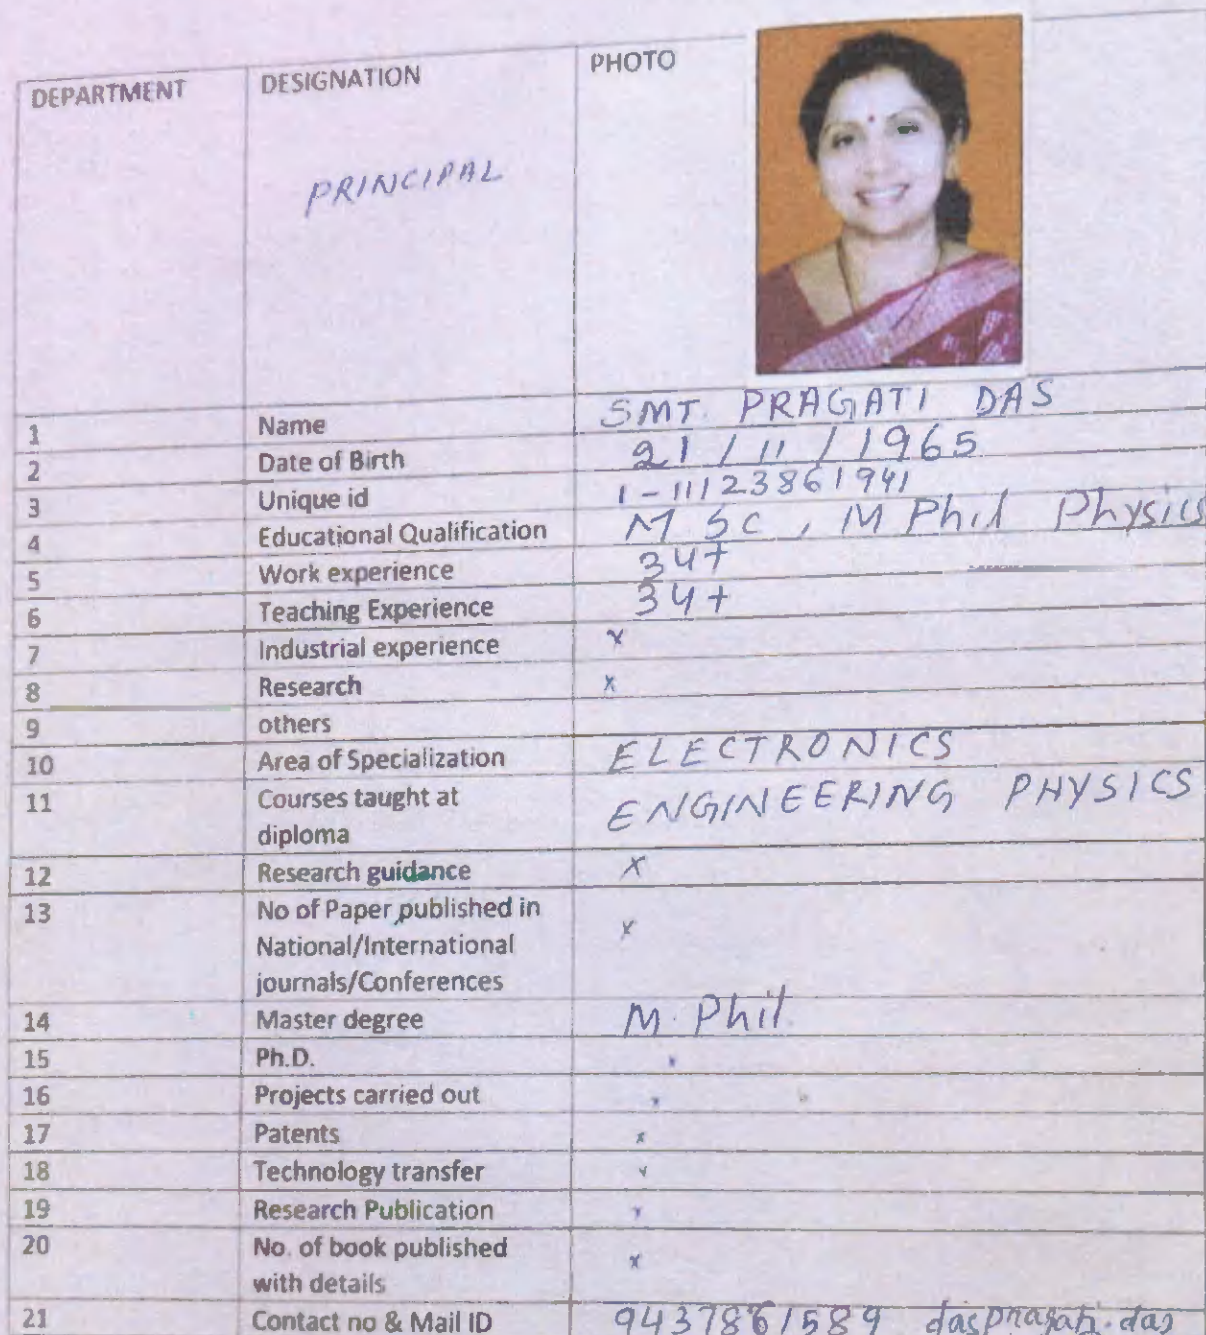 DEPARTMENT DESIGNATION PHOTO
PRINCIPAL
1 Name SMT. PRAGATI DAS
2 Date of Birth 21/11/1965
3 Unique id 1-11123861941
4 Educational Qualification M Sc, M Phil Physics
5 Work experience 34+
6 Teaching Experience 34+
7 Industrial experience x
8 Research x
9 others
10 Area of Specialization ELECTRONICS
11 Courses taught at ENGINEERING PHYSICS
diploma
12 Research guidance x
13 No of Paper published in
National/International x
journals/Conferences
14 Master degree M. Phil
15 Ph.D. x
16 Projects carried out x
17 Patents x
18 Technology transfer x
19 Research Publication x
20 No. of book published
with details x
21 Contact no & Mail ID 9437861589 daspragati.das